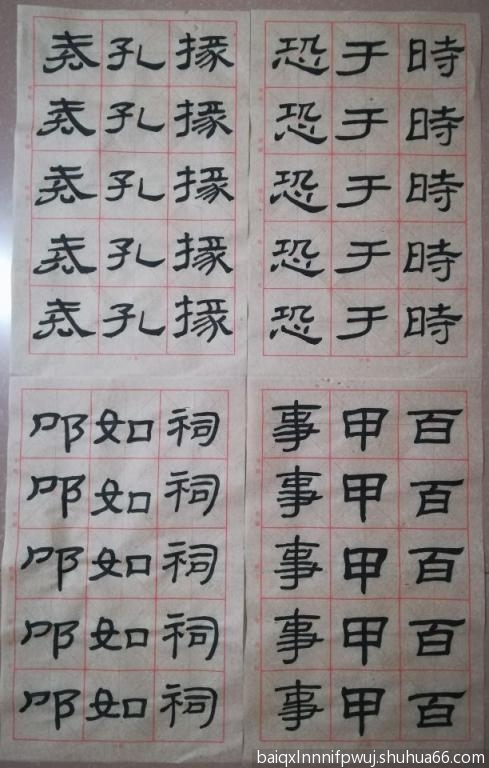 時時時時時
于于于于于
恐恐恐恐恐
掾掾掾掾掾
孔孔孔孔孔
百百百百百
甲甲甲甲甲
事事事事事
祠祠祠祠祠
如如如如如
叩叩叩叩叩
baiqxlnnnifpwuj.shuhua66.com